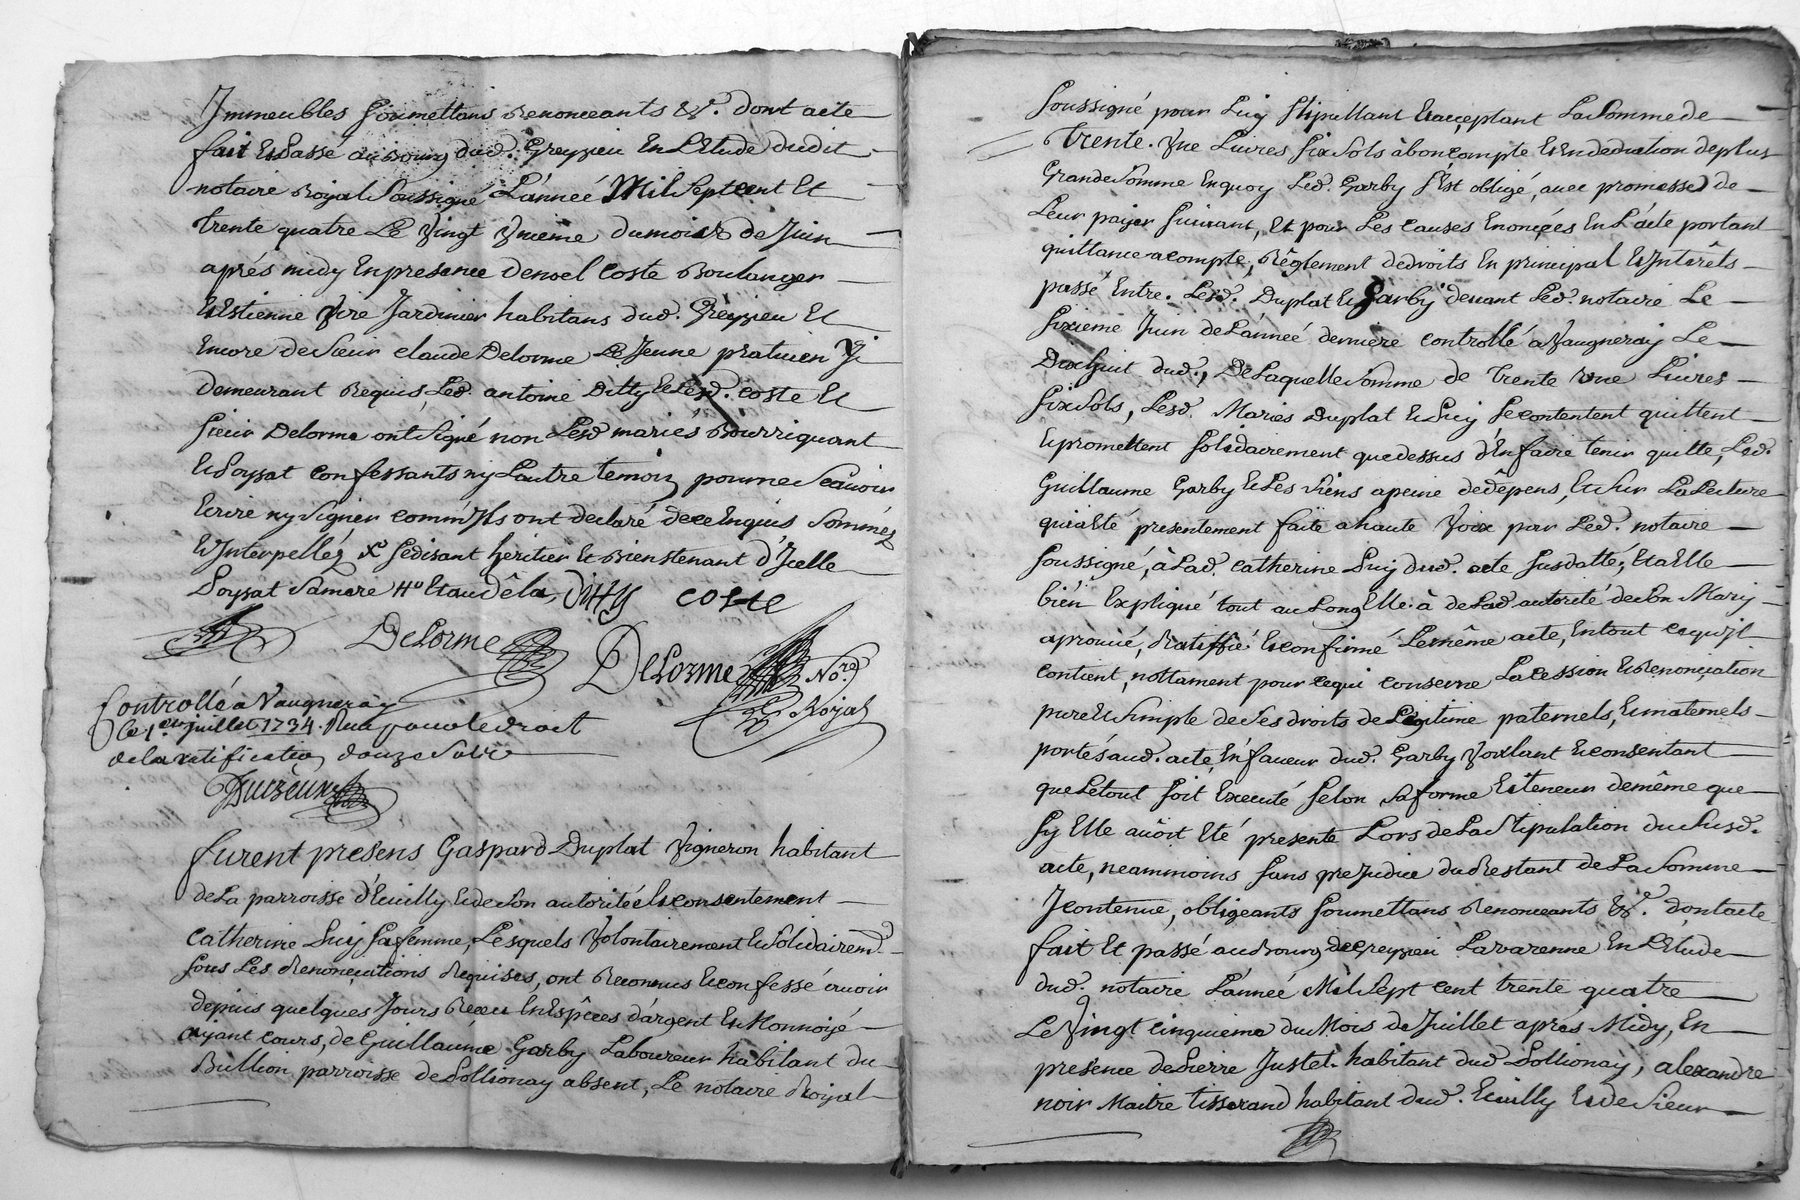 Immeubles soumettans renonceants &c. dont acte
fait et passé au bourg dud. Greyzieu en L'Etude dudit
notaire Royal soussigné L'anneé Mil sept cent et
trente quatre Le vingt unieme du mois de Juin
aprés midy en presence de noel Coste Boulanger
et Estienne vire Jardinier habitans dud. Greyzieu et
encore de sieur claude Delorme Le Jeune praticien y
demeurant requis Led. antoine Ditty et Led. coste et
sieur Delorme ont signé non Lesd mariés Bourriquant
et Poyzat confessants ny L'autre temoin pour ne scavoir
Ecrire ny signer comm'ils ont declaré de ce Enquis sommés
et Interpellés X se disant heritier et Bienstenant d'Icelle
Poyzat sa mere Ho et au dêla, Ditty COSte
DeLorme DeLorme No.re Royal
Controllé a Vaugneray
le 1.er juillet 1734. Reçu pour le droit
de la ratification douze sols
Duizeux
furent presens Gaspard Duplat vigneron habitant
de La parroisse d'Eculy et de son autorité et consentement
Catherine Luy sa femme, Lesquels volontairement et solidairemt.
sous Les Renonçiations Requises, ont Reconnus et confessé avoir
depuis quelques Jours Receu en Espêces d'argent et Monnoyé
ayant cours, de Guillaume Garby Laboureur habitant du
Bullion parroisse de Pollionay absent, Le notaire Royal
soussigné pour Luy stipullant et acçeptant La somme de
trente une Livres six sols à bon compte et en deduction de plus
Grande somme en quoy Led. Garby s'Est obligé, avec promesse de
Leur payer suivant, et pour Les causes Enonçées En L'acte portant
quittance a compte, Rêglement de droits en principal et Intêrêts
passé Entre Lesd. Duplat et Garby devant Led. notaire Le
sixieme Juin de L'anneé derniere controllé à Vaugneray Le
Dixhuit dud., De Laquelle somme de trente une Livres
six sols, Lesd. Mariés Duplat et Luy se contentent quittent
et promettent solidairement que dessus d'En faire tenir quitte, Led.
Guillaume Garby et Les siens a peine de dêpens, et sur La Lecture
qui a Eté presentement faite a haute voix par Led. notaire
soussigné, à Lad. catherine Luy dud. acte susdatté, et a Elle
bien Expliqué tout au Long Elle à de Lad autorité de son Mary
aprouvé, Ratiffié et confirmé Le même acte, En tout ce qu'il
contient, nottament pour ce qui conserne La cession et Renonçiation
pure et simple de ses droits de Legitime paternels, et maternels
portés aud. acte, En faveur dud. Garby voulant et consentant
que Le tout soit Executé selon sa forme et teneur de même que
sy Elle avoit Eté presente Lors de La stipulation du susd.
acte, neammoins sans preJudice du Restant de La somme
y contenue, obligeants soumettans Renonceants &c. dont acte
fait Et passé au Bourg de Greyzieu Lavarenne En L'Etude
dud. notaire L'anneé Mil sept cent trente quatre
Le vingt cinquieme du Mois de Juillet aprés Midy, En
presence de Pierre Justet habitant dud Pollionay, alexandre
noir Maitre tisserand habitant dud. Eculy et de sieur